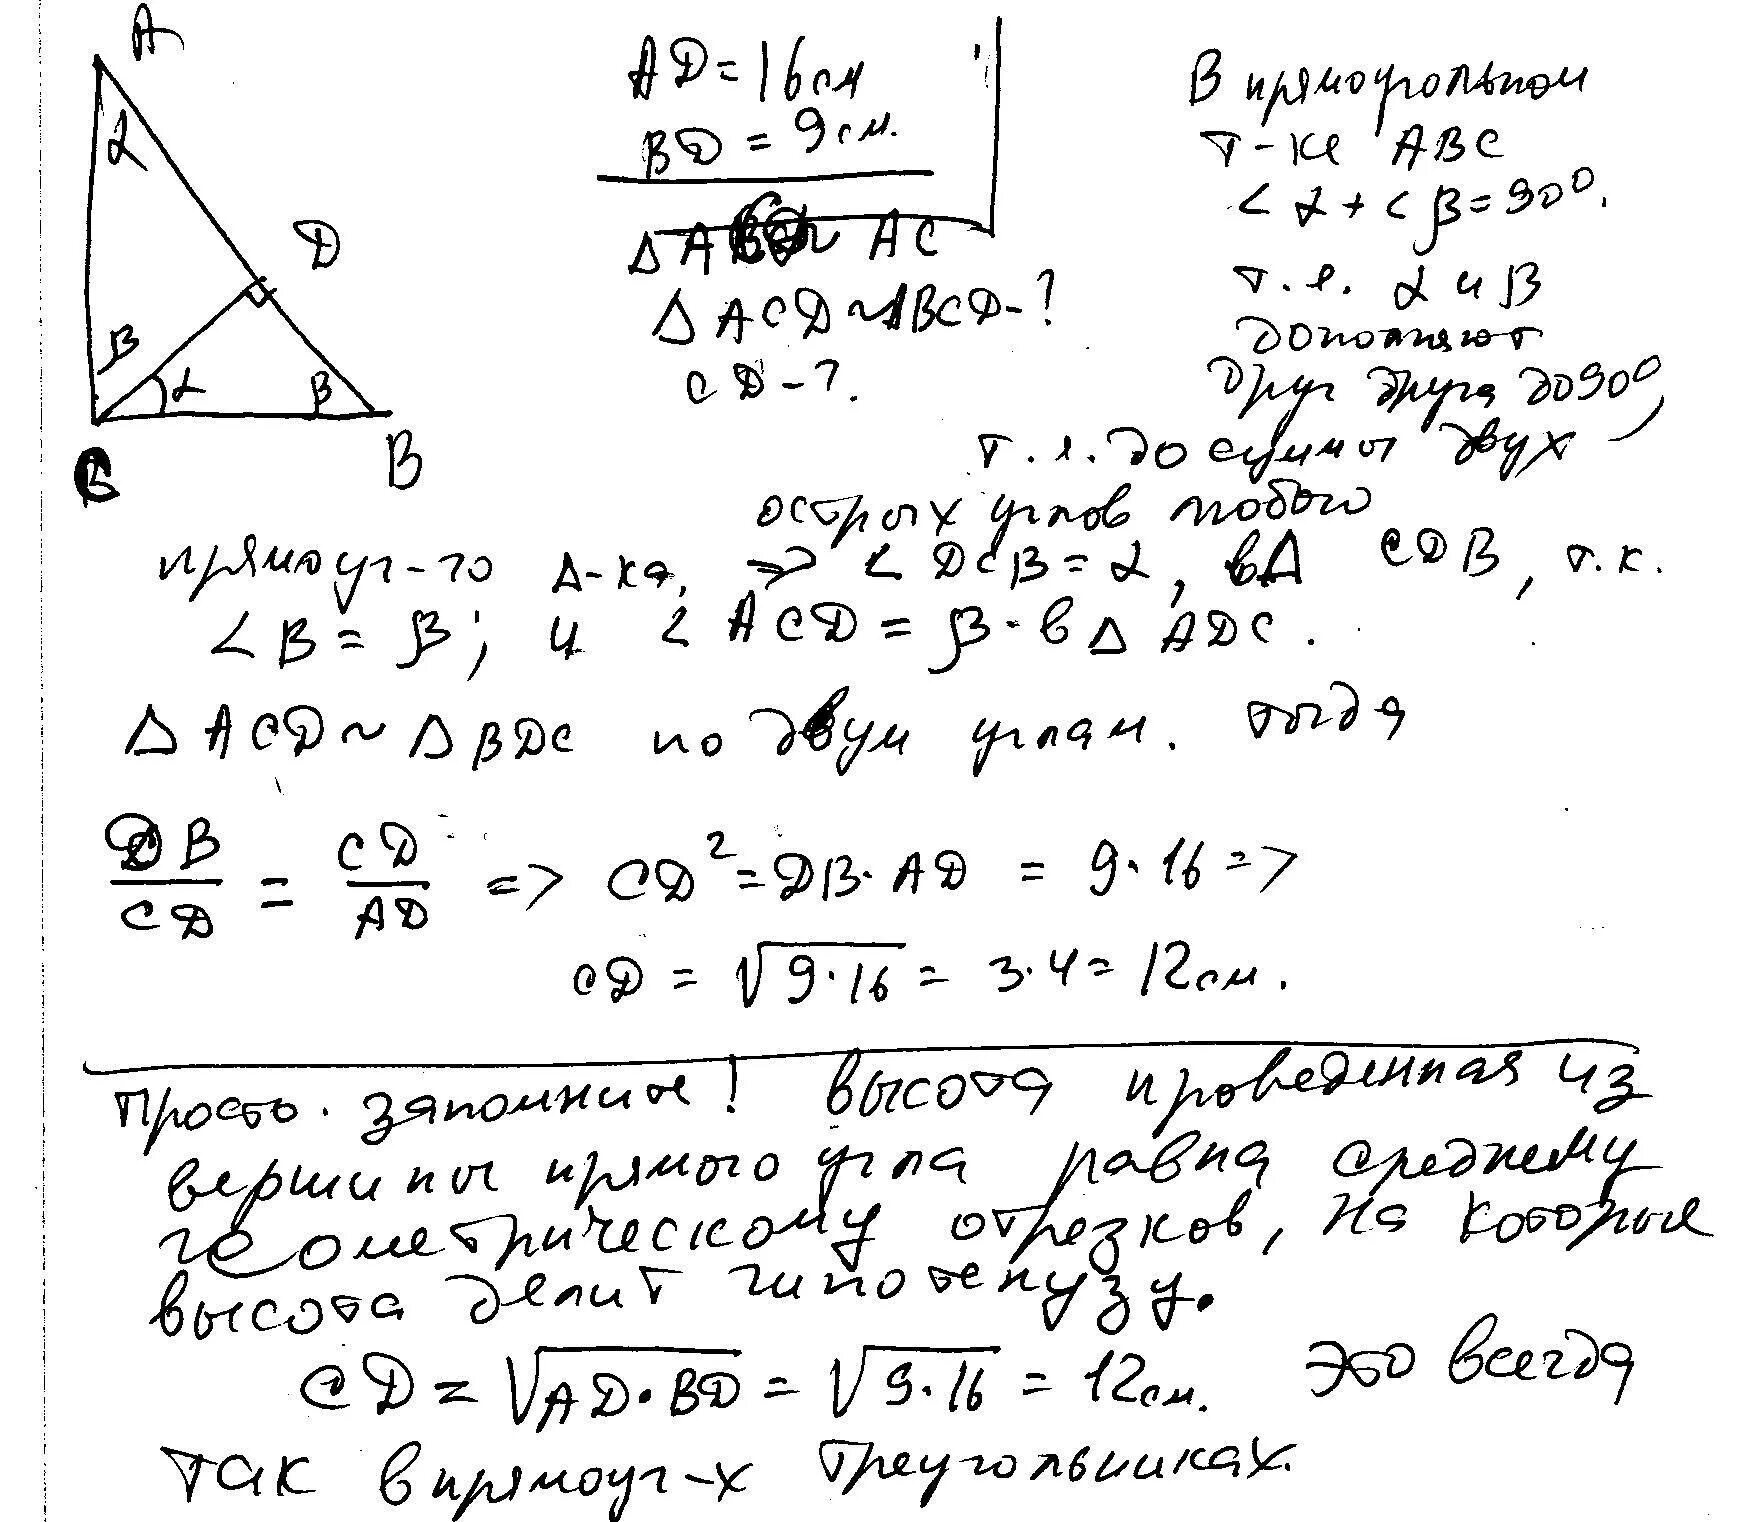 A
α
D
β
α
β
C
B
AD = 16 см
BD = 9 см.
Δ A ~ AC
Δ ACD ~ ΔBCD - ?
CD - ?.
В прямоугольном
т-ке ABC
< α + < β = 90°.
т.е. α и β
дополняют
друг друга до 90°,
т.е. до суммы двух
острых углов любого
прямоуг-го Δ-ка, => < DCB = α, в Δ CDB, т.к.
< B = β; и < ACD = β - в Δ ADC.
Δ ACD ~ Δ BDC по двум углам. тогда
DB/CD = CD/AD => CD² = DB · AD = 9 · 16 =>
CD = √9·16 = 3·4 = 12 см.
Просто запомните! высота проведенная из
вершины прямого угла равна среднему
геометрическому отрезков, на которые
высота делит гипотенузу.
CD = √AD·BD = √9·16 = 12 см. это всегда
так в прямоуг-х треугольниках.